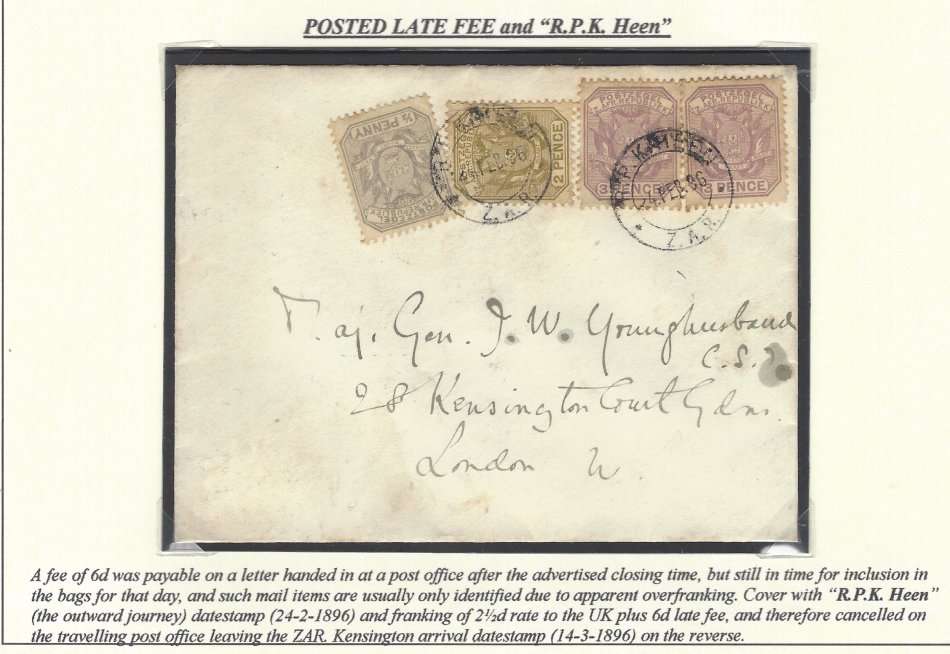 POSTED LATE FEE and “R.P.K. Heen”
½ PENNY
2 PENCE
3 PENCE
PENCE
R.P. K. HEEN
FEB. 96
Z.A.R.
R.P. K. HEEN
24 FEB. 96
Z.A.R.
Maj. Gen. J. W. Younghusband
C.S.I
28 Kensington Court Gdns.
London W.
A fee of 6d was payable on a letter handed in at a post office after the advertised closing time, but still in time for inclusion in
the bags for that day, and such mail items are usually only identified due to apparent overfranking. Cover with “R.P.K. Heen”
(the outward journey) datestamp (24-2-1896) and franking of 2½d rate to the UK plus 6d late fee, and therefore cancelled on
the travelling post office leaving the ZAR. Kensington arrival datestamp (14-3-1896) on the reverse.